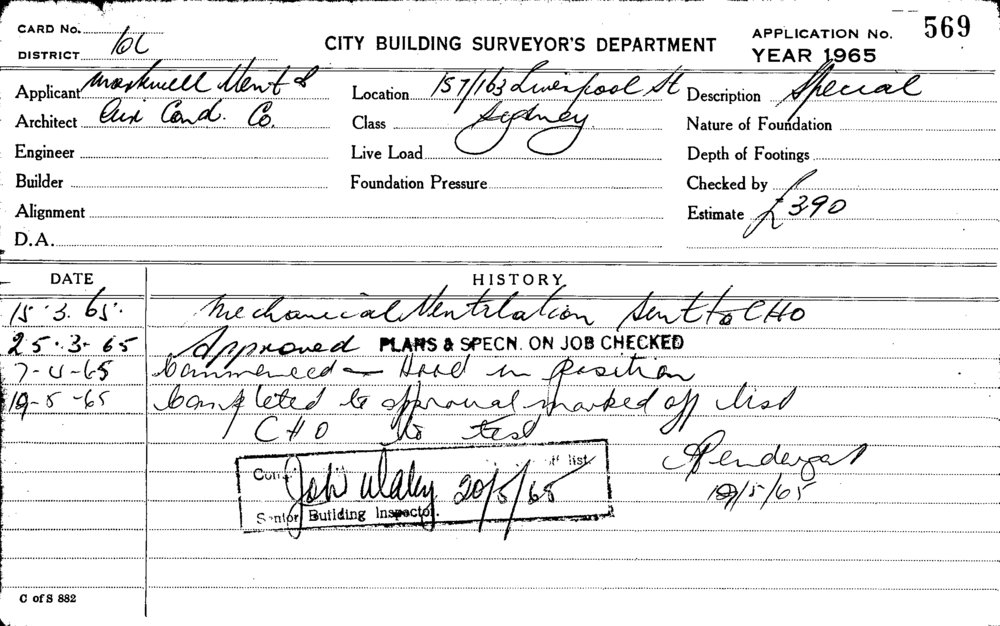 CARD No.
DISTRICT
CITY BUILDING SURVEYOR'S DEPARTMENT
APPLICATION No. 569
YEAR 1965
Applicant Markwell Vent &
Location 157/163 Liverpool St
Description Special
Architect Air Cond. Co.
Class Sydney
Nature of Foundation
Engineer
Live Load
Depth of Footings
Builder
Foundation Pressure
Checked by
Alignment
Estimate £390
D.A.
DATE HISTORY
15.3.65. Mechanical Ventilation Sent to CHO
25.3-65 Approved PLANS & SPECN. ON JOB CHECKED
7-4-65 Commenced - Hood in position
19-5-65 Completed to approval marked off list
CHO to test
Pendergast
19/5/65
list.
20/5/65
Senior Building Inspector.
C of S 882